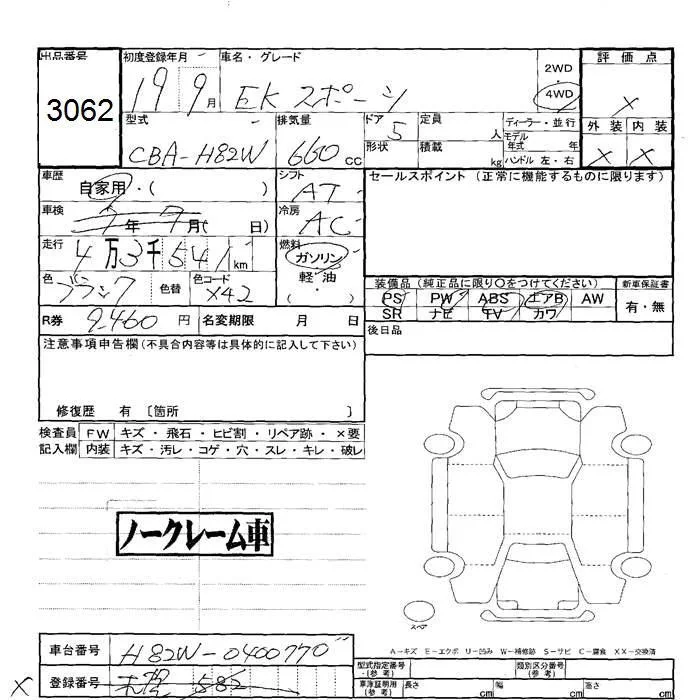 出品番号 初度登録年月 車名・グレード 2WD 評価点
3062 19 9月 EK スポーツ ・ 4WD ×
型式 排気量 ドア 定員 ディーラー・並行 外装 内装
CBA-H82W 660cc 5 人 モデル年式 年 × ×
形状 積載 kg ハンドル 左・右
車歴 自家用・( ) シフト AT セールスポイント (正常に機能するものに限ります)
車検 年 7月( 日) 冷房 AC
走行 4万3千541km 燃料 ガソリン
軽・油
色 ブラック 色替 色コード X42 ・( )
装備品(純正品に限り〇をつけてください) 新車保証書
PS PW ABS エアB AW 有・無
SR ナビ TV カワ
R券 9,460円 名変期限 月 日
後日品
注意事項申告欄(不具合内容等は具体的に記入して下さい)
修復歴 有 〔箇所 〕
検査員 FW キズ・飛石・ヒビ割・リペア跡・×要
記入欄 内装 キズ・汚レ・コゲ・穴・スレ・キレ・破レ
ノークレーム車
スペア
A−キズ E−エクボ U−凹み W−補修跡 S−サビ C−腐食 XX−交換済
車台番号 H82W-0400770
型式指定番号・(参考) 類別区分番号(参考)
× 登録番号 582
車庫証明用(参考) 長さ cm 幅 cm 高さ cm